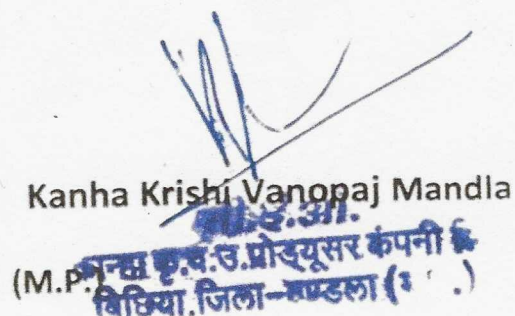 Kanha Krishi Vanopaj Mandla
सी.ई.ओ.
कृ.व.उ.प्रोड्यूसर कंपनी
(M.P.)
बिछिया,जिला-मण्डला (